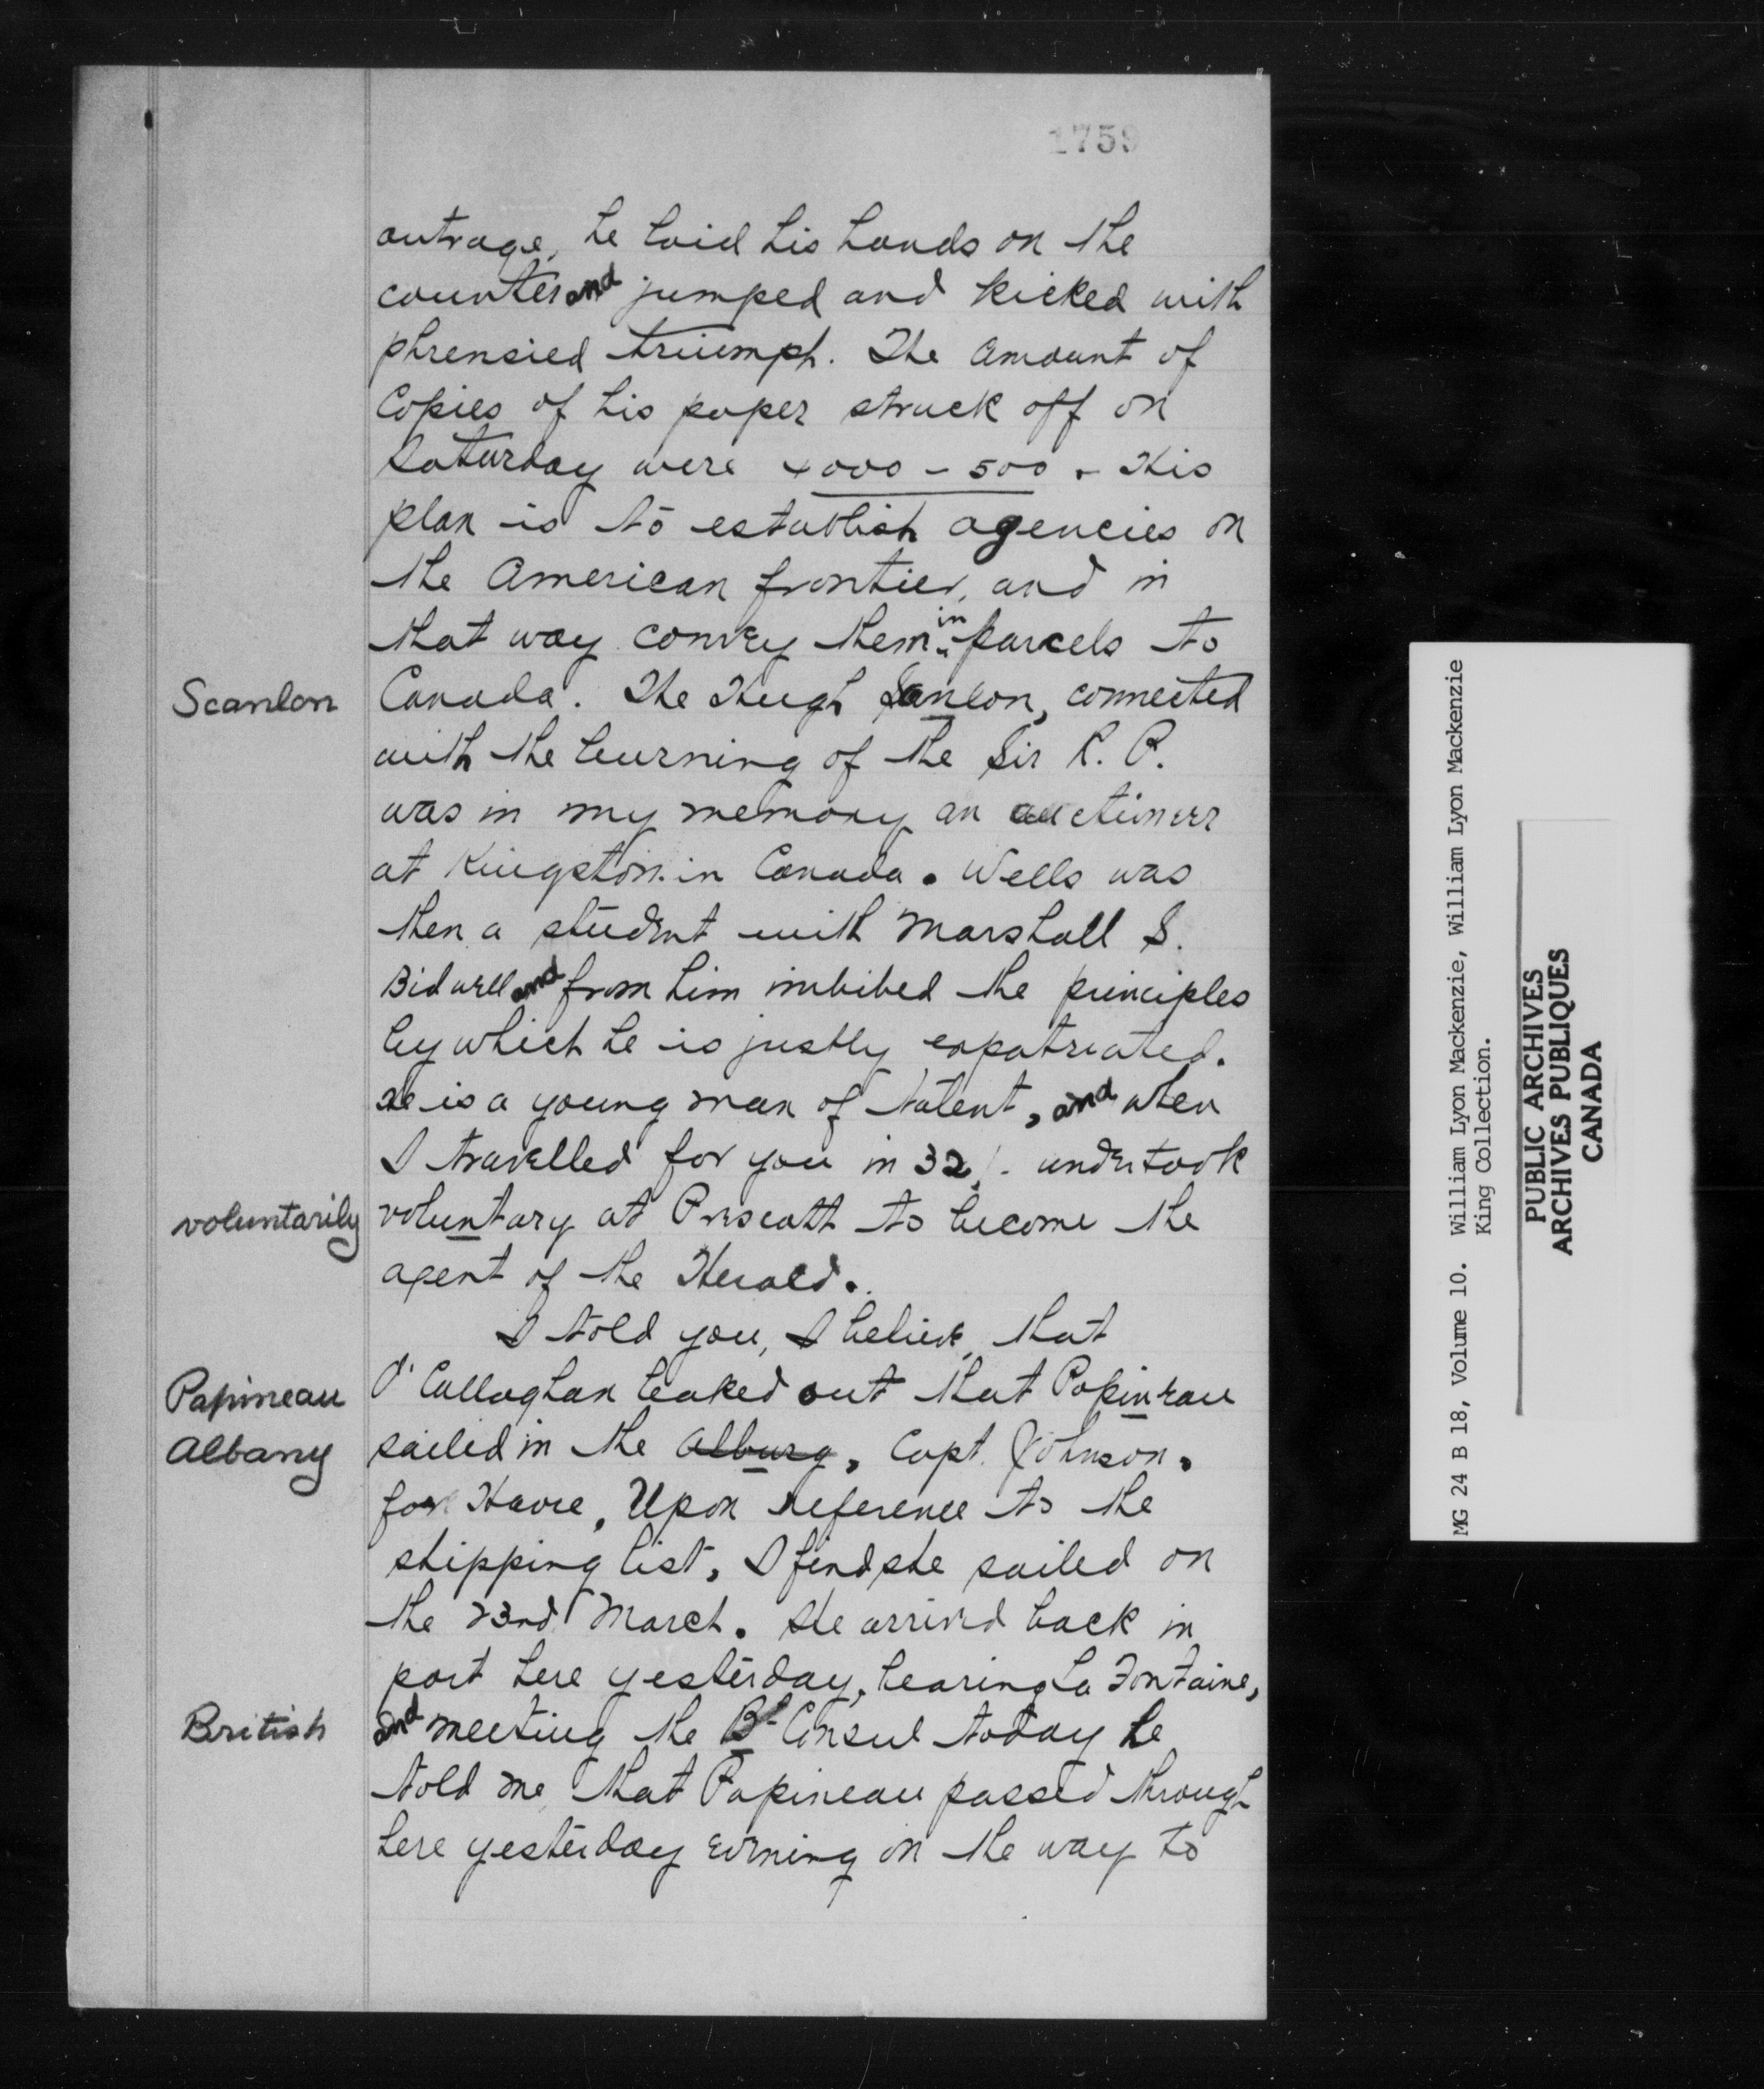 1759
outrage, he laid his hands on the
counter and jumped and kicked with
phrensied triumph. The amount of
Copies of his paper struck off on
Saturday were 4000 - 500. His
plan is to establish agencies on
the American frontier, and in
that way convey them in parcels to
Scanlon
Canada. The Hugh Sanlon, connected
with the burning of the Sir R. P.
was in my memory an auctioneer
at Kingston in Canada. Wells was
then a student with Marshall S.
Bidwell and from him imbibed the principles
by which he is justly expatriated.
He is a young man of talent, and when
I travelled for you in 32/. undertook
voluntarily
voluntary at Prescott to become the
agent of the Herald.
I told you, I believe, that
Papineau
O'Callaghan leaked out that Papineau
Albany
sailed in the Alburg, Capt. Johnson,
for Havre. Upon reference to the
shipping list, I find she sailed on
the 23rd March. She arrived back in
port here yesterday, bearing La Fontaine,
British
and meeting the Bt Consul today he
told me that Papineau passed through
here yesterday evening on the way to
MG 24 B 18, Volume 10. William Lyon Mackenzie, William Lyon Mackenzie
King Collection.
PUBLIC ARCHIVES
ARCHIVES PUBLIQUES
CANADA